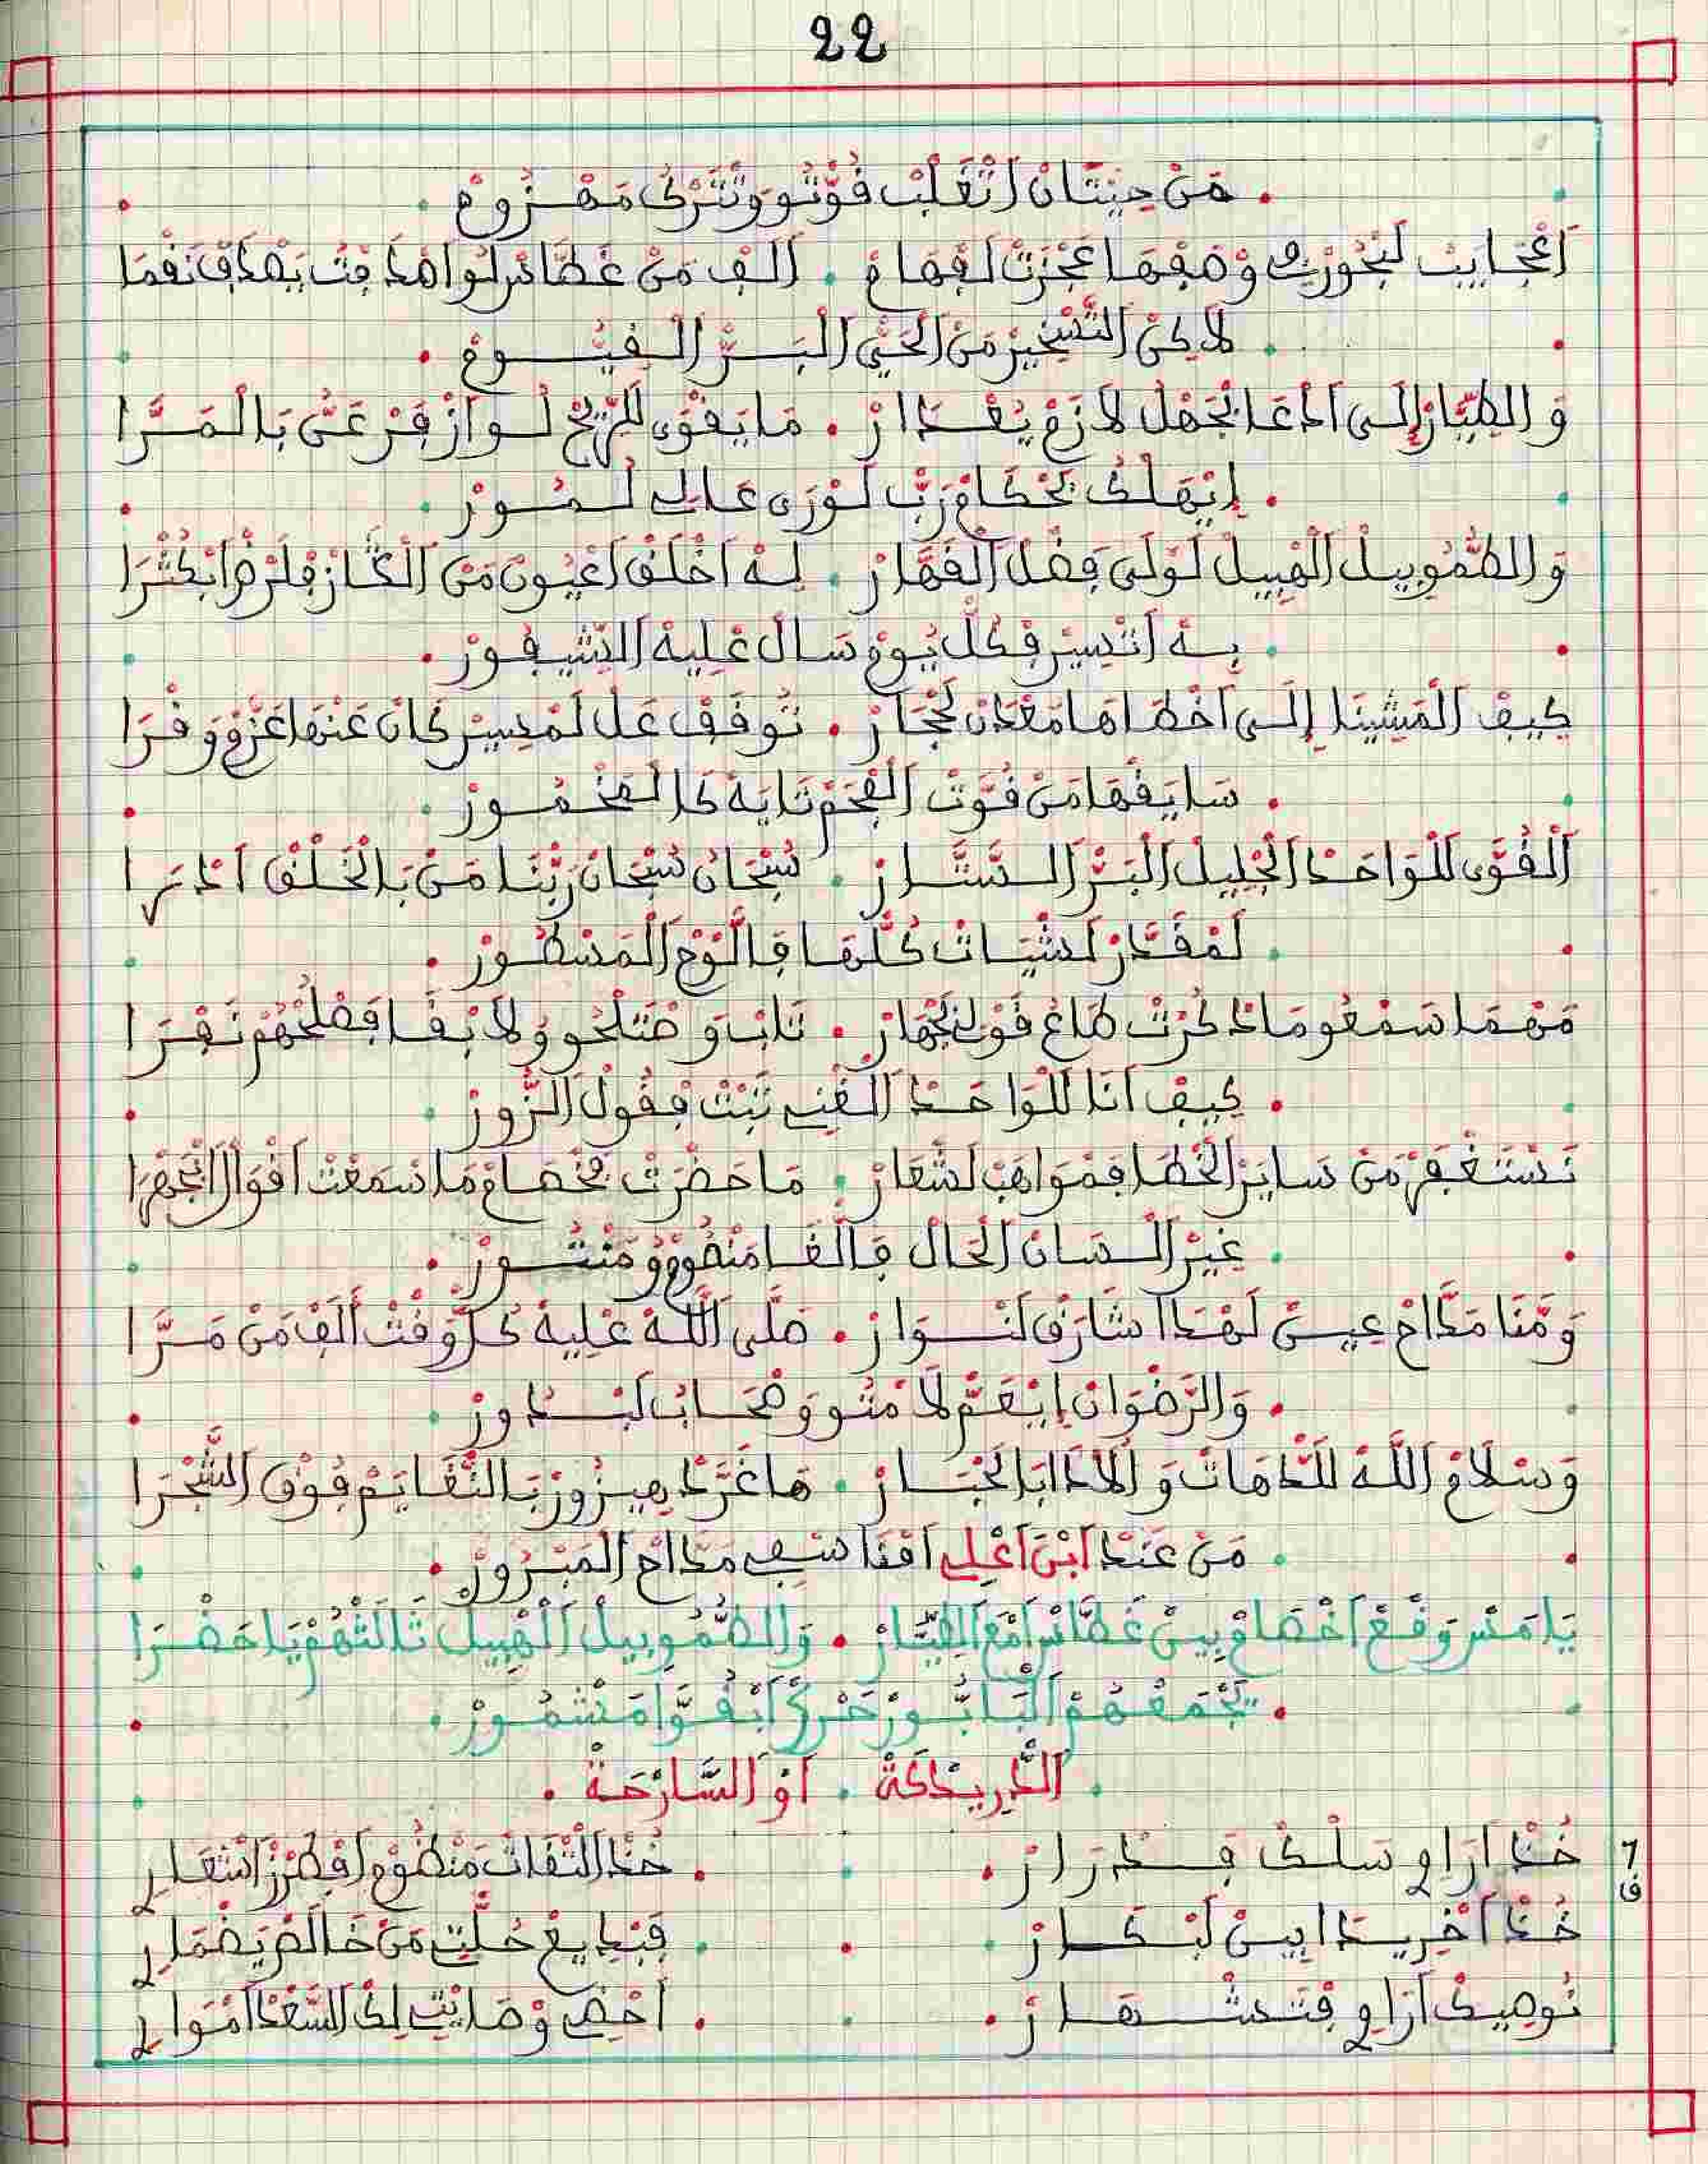 22
مَنْ حِيتَانْ اَتْغَلْبْ قُوّْتُو وَتَّتْرَكْ مَهْزُومْ
اَعْجَايَبْ لَبْحُورْ وْصَفْهَا عَجْزَتْ لَفْهَامْ . اَلَفْ مَنْ غَطَّاسْ لُو اَهْدَفْتْ يَصْدَفْ نَقْمَا
لَاكِنْ التَّسْخِيرْ مَنْ اَلْحَيّْ اَلْبَرّْ اَلْقِيُّومْ
وَالطِّيَّارْ إِلَى اَدْعَا بْجَهْلْ لَازَمْ يُغْدَارْ . مَا يَقْوَى لَلرِّيحْ لُو اَزْفَرْ عَنُّ بَالْمَرَّا
إِيْهَلْكُ بَحْكَامْ رَبّْ لَوْرَى عَالِي لُمُورْ
وَالطُّمُوبِيلْ اَلْهْبِيلْ لَوْلَى فِضْلْ اَلْقَهَّارْ . لِهْ اَخْلَقْ اَعْيُونْ مَنْ اَلْكَازْ فْلَرْضْ اَبْكَثْرَا
بِهْ اَتْسِيرْ فْكُلّْ يُومْ سَالْ عْلِيهْ اَلشِّيفُورْ
كِيفْ اَلْمَشِينَا إِلَى اَخْطَاهَا مَعْدَنْ لَحْجَارْ . تُوقَفْ عَلْ لَمْسِيرْ كَانْ عَنْهَا عَزْمْ وَقْرَا
سَايَقْهَا مَنْ قُوّْتْ اَلْفْحَمْ تَايَهْ كَالْمَخْمُورْ
اَلْقُوَّى لَلْوَاحَدْ اَلْجْلِيلْ اَلْبَرّْ اَلسَّتَّارْ . سُبْحَانُ سُبْحَانْ رَبّْنَا مَنْ بَالْخَلْقْ اَدْرَى
لَمْقَدَّرْ لَشْيَاتْ كُلّْهَا فَاللَّوْحْ اَلْمَسْطُورْ
مَهْمَا سَمْعُو مَا دْكَرْتْ طَاعْ قَوْلِي بَجْهَارْ . تَابُ وَصْتَلْحُو وُلَا بْقَا فَصْلُحْهُمْ نَفْرَا
كِيفْ اَنَا لَلْوَاحَدْ اَلْغْنِي تَبْتْ فْقُولْ اَلزُّورْ
نَسْتَغْفَرْ مَنْ سَايَرْ اَلْخْطَا فَمْوَاهَبْ لَشْعَارْ . مَا حَضْرَتْ لَخْصَامْ مَا سْمَعْتْ اَقْوَالْ اَبْجَهْرَا
غِيرْ اَلْسَانْ اَلْحَالْ فَالْغَا مَنْظُومْ وُمَنْثُورْ
وَمَّنَا مَدَّاحْ عِينْ لَهْدَا شَارَقْ لَنْوَارْ . صَلَّى اَللَّهْ عْلِيهْ كُلّْ وَقْتْ اَلَفْ مَنْ مَرَّا
وَالرَّضْوَانْ اِيْعَمّْ لَامْتُو وَصْحَابُ لَبْدُورْ
وَسْلَامْ اَللَّهْ لَلدّْهَاتْ وَالْأَدَابَا لَحْبَارْ . مَا غَرَّدْ هِيزُورْ بَالنّْغَايَمْ فُوقْ اَلشَّجْرَا
مَنْ عَنْدْ اَبْنْ اَعْلِي اَمْنَاسْفِي مَدَّاحْ اَلْمَبْرُورْ
يَا مَسْ وَقْعْ اَخْصَامْ بِينْ غَطَّاسْ اَمْعَ اَلطِّيَّارْ . وَالطُّمُوبِيلْ اَلْهْبِيلْ ثَالَتْهُمْ يَا حَضْرَا
تَجْمَعْهُمْ اَلْبَابُّورْ حَرْكُ اَبْقُوَّا مَشْمُورْ
اَلدّْرِيدْكَةْ . اَوْ اَلسَّارْحَةْ .
خُدْ اَرَاوِي سَلْكْ فَدْرَارْ . خُدْ اَلتّْقَاتْ مَنْظُومْ اَفْطَرْزْ اَشْعَارِي
خُدْ اَخْرِيدَا بِينْ لَبْكَارْ . فَبْدِيعْ حُلّْتِي مَنْ خَالَصْ يَضْمَارِي
نُوصِيكْ اَرَاوِي فْتَشْهَارْ . اَحْضِي وْصَايْتِي لِكْ اَلسَّعْدْ اَمْوَالِي
6
ف